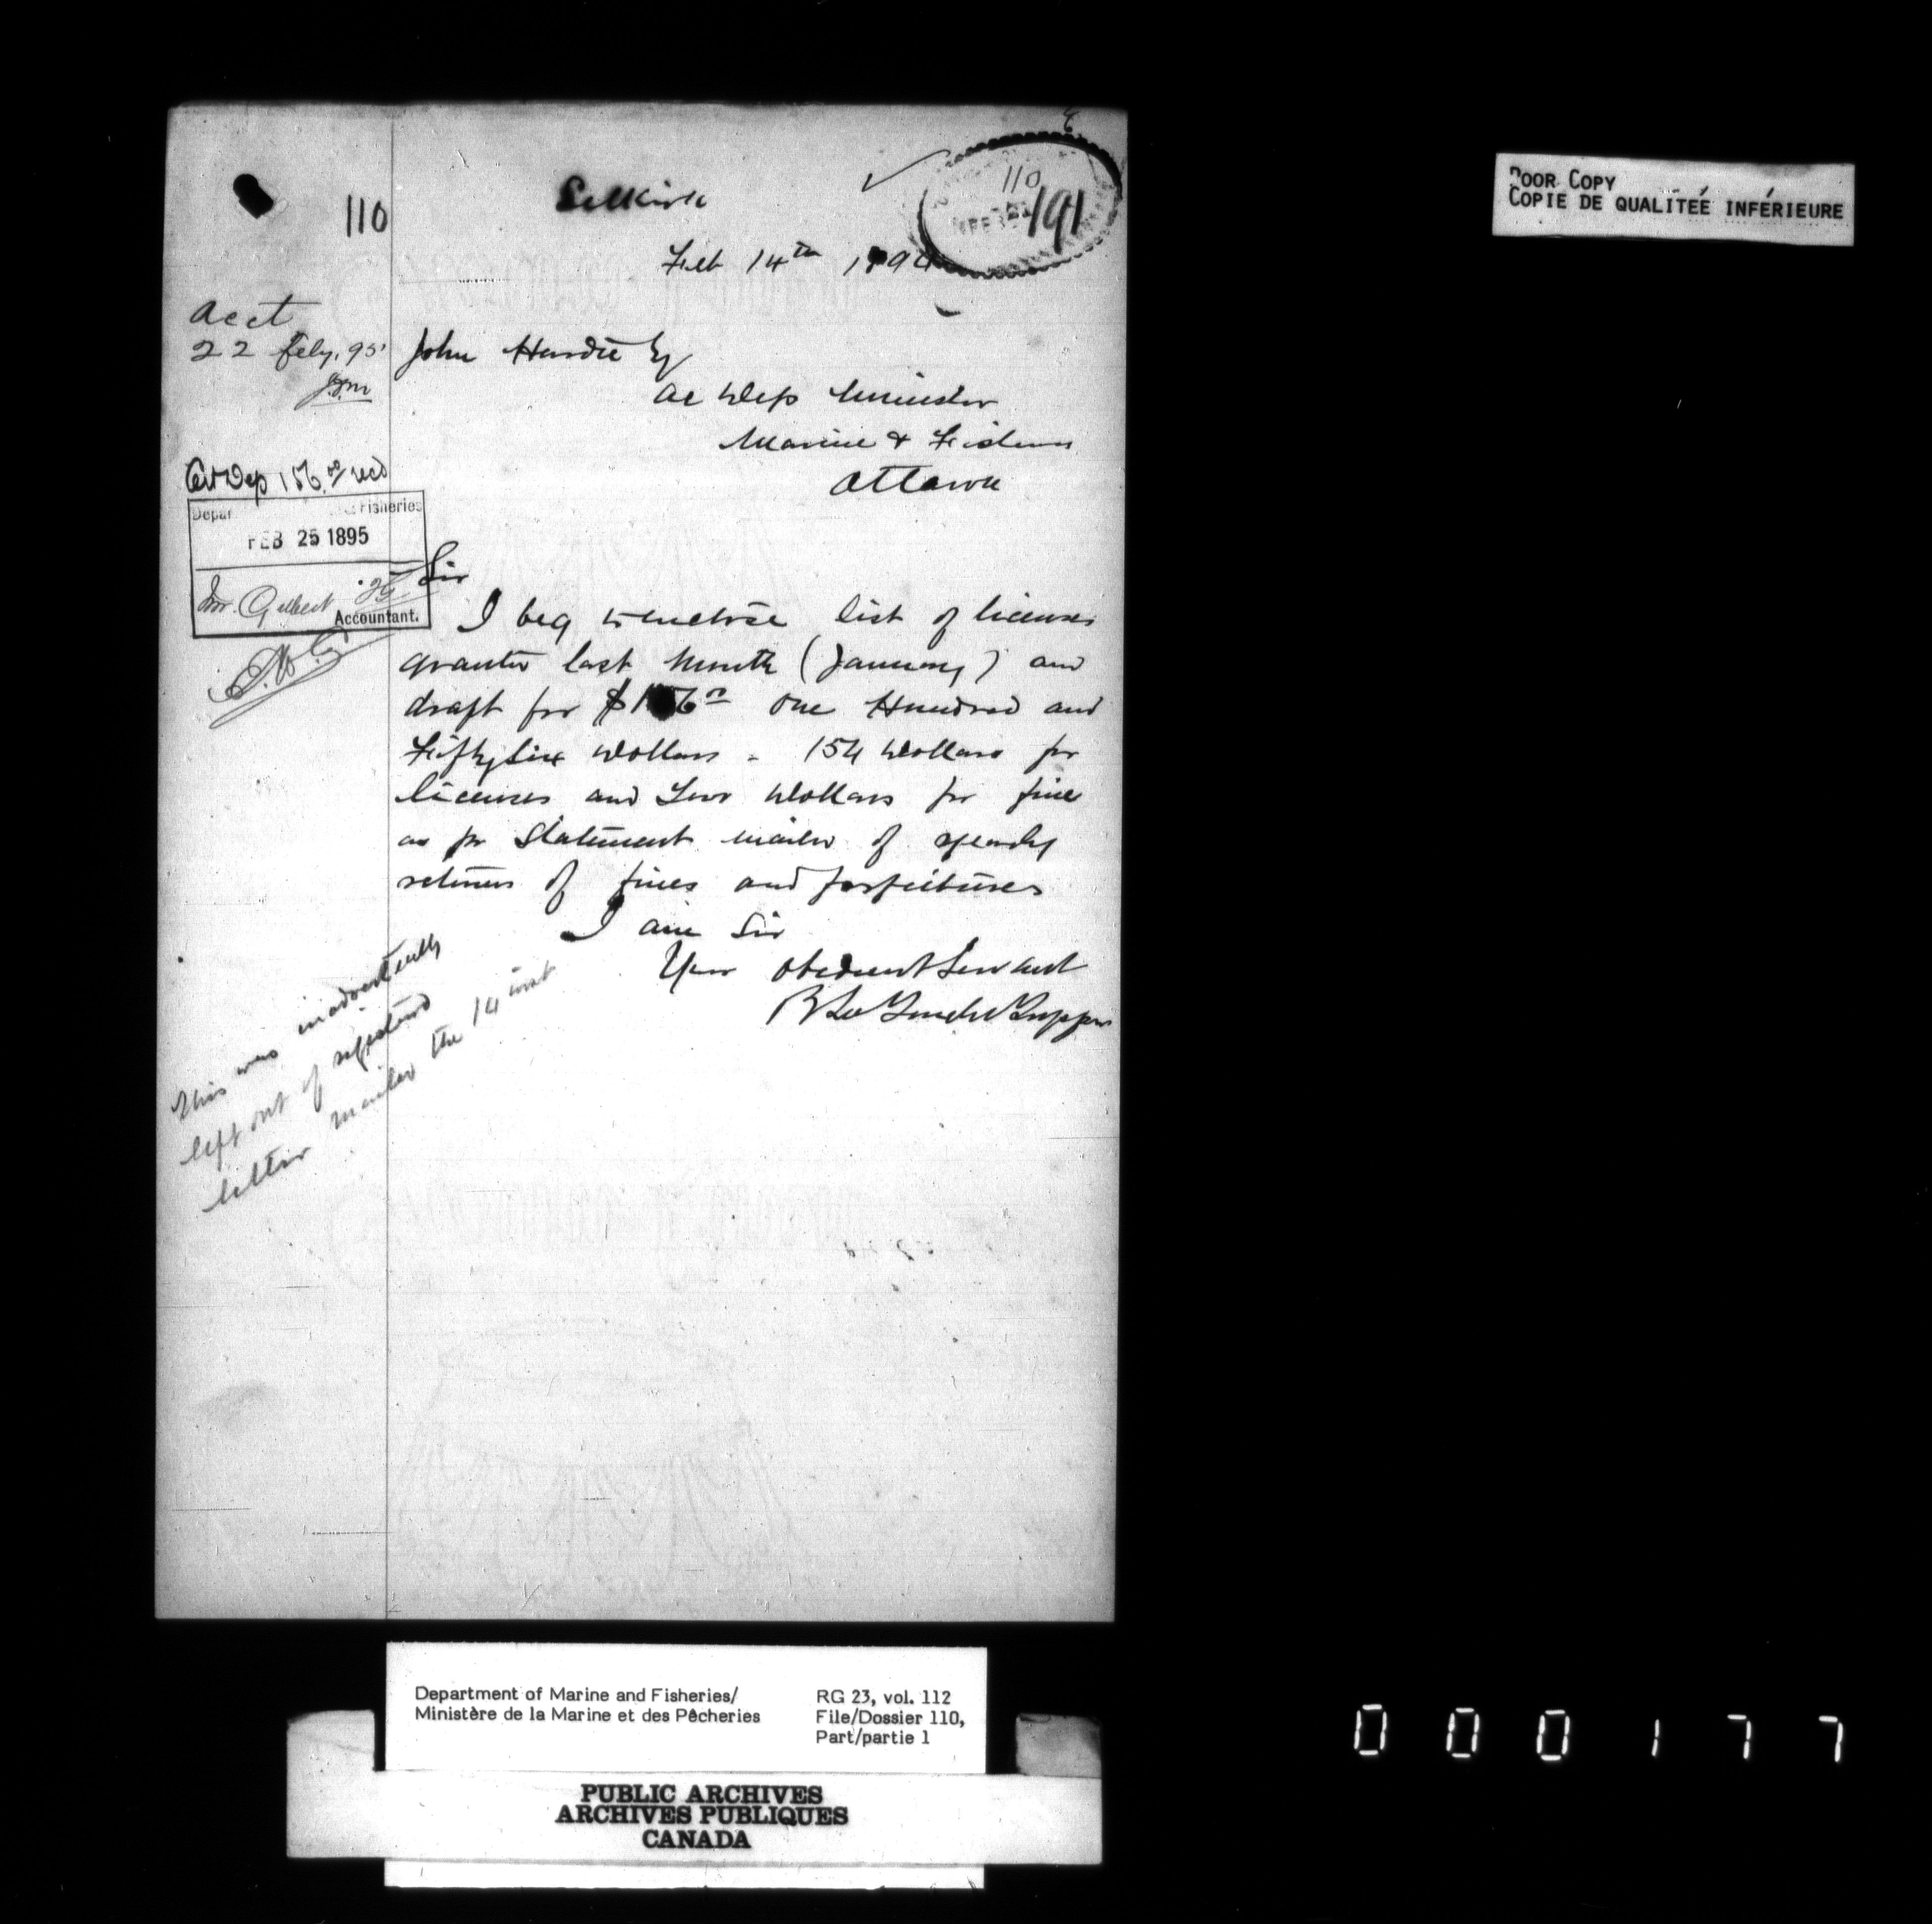 110
Selkirk
110
191
Feb 14th 1894
Acct
22 Feby. 95
John Hardie Esq
Ac Dep Minister
Marine & Fisheries
Ottawa
Cert Dep 156.00/ recd
Depar Fisheries
FEB 25 1895
Mr. Gilbert
Accountant.
Sir
I beg to enclose list of licenses
granted last month (January) and
draft for $156.00 One Hundred and
Fifty Six Dollars - 154 Dollars for
licenses and Two Dollars for fine
as pr statement mailed of yearly
returns of fines and forfeitures
I am Sir
Your obedient Servant
R La Touche Tupper
This was inadvertently
left out of registered
letter mailed the 14 inst
POOR COPY
COPIE DE QUALITEÉ INFÉRIEURE
Department of Marine and Fisheries/
Ministère de la Marine et des Pêcheries
RG 23, vol. 112
File/Dossier 110,
Part/partie 1
PUBLIC ARCHIVES
ARCHIVES PUBLIQUES
CANADA
000177